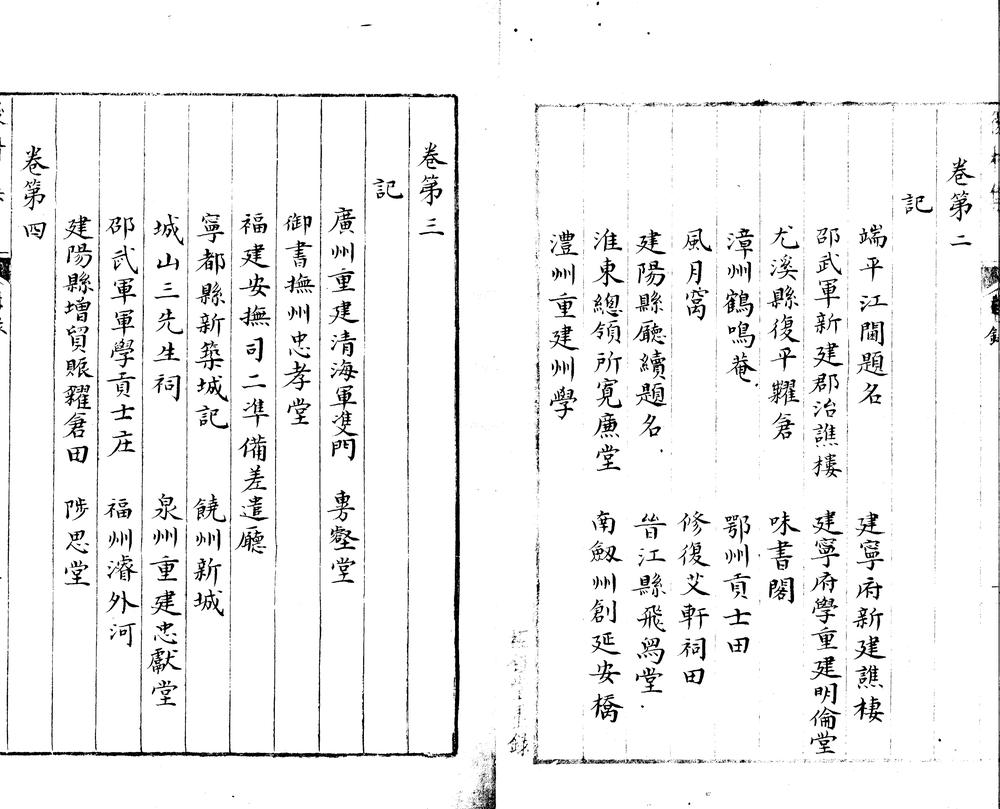 卷第二
記
端平江閫題名 建寧府新建譙樓
邵武軍新建郡治譙樓 建寧府學重建明倫堂
尤溪縣復平糶倉 味書閣
漳州鶴鳴菴 鄂州貢士田
風月窩 修復艾軒祠田
建陽縣廳續題名 晉江縣飛舄堂
淮東總領所寬廉堂 南劔州創延安橋
澧州重建州學
卷第三
記
廣州重建清海軍雙門 專壑堂
御書撫州忠孝堂
福建安撫司二準備差遣廳
寧都縣新築城記 饒州新城
城山三先生祠 泉州重建忠獻堂
邵武軍軍學貢士庄 福州濬外河
建陽縣增貿賑糶倉田 陟思堂
卷第四